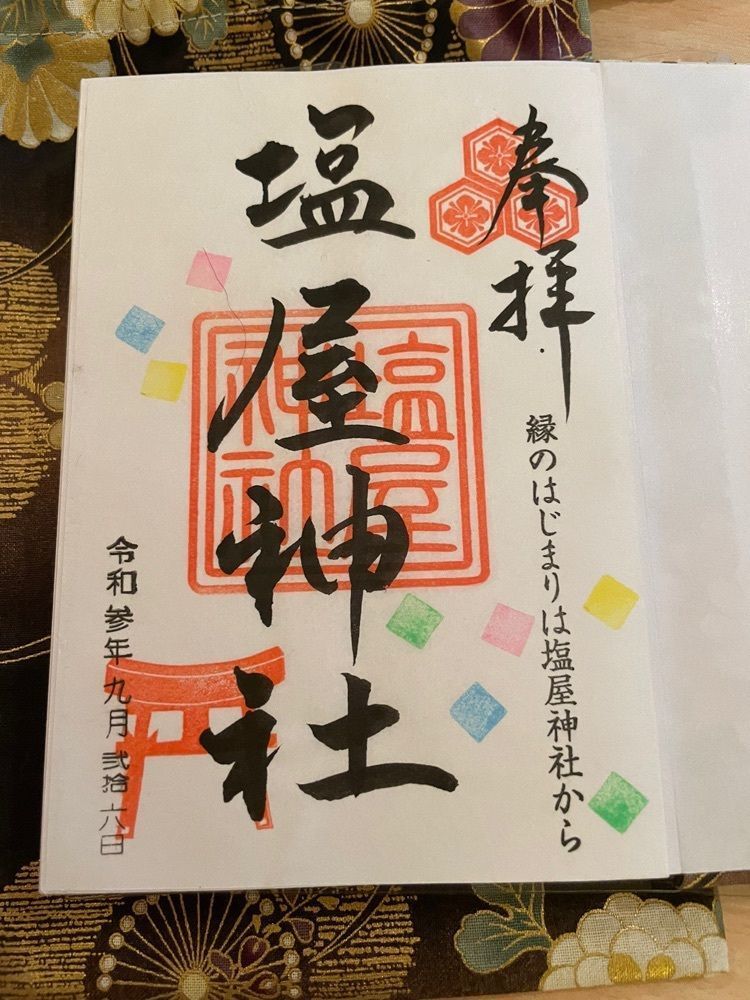 奉拝
縁のはじまりは塩屋神社から
塩屋神社
塩屋
神社
令和参年九月弐拾六日